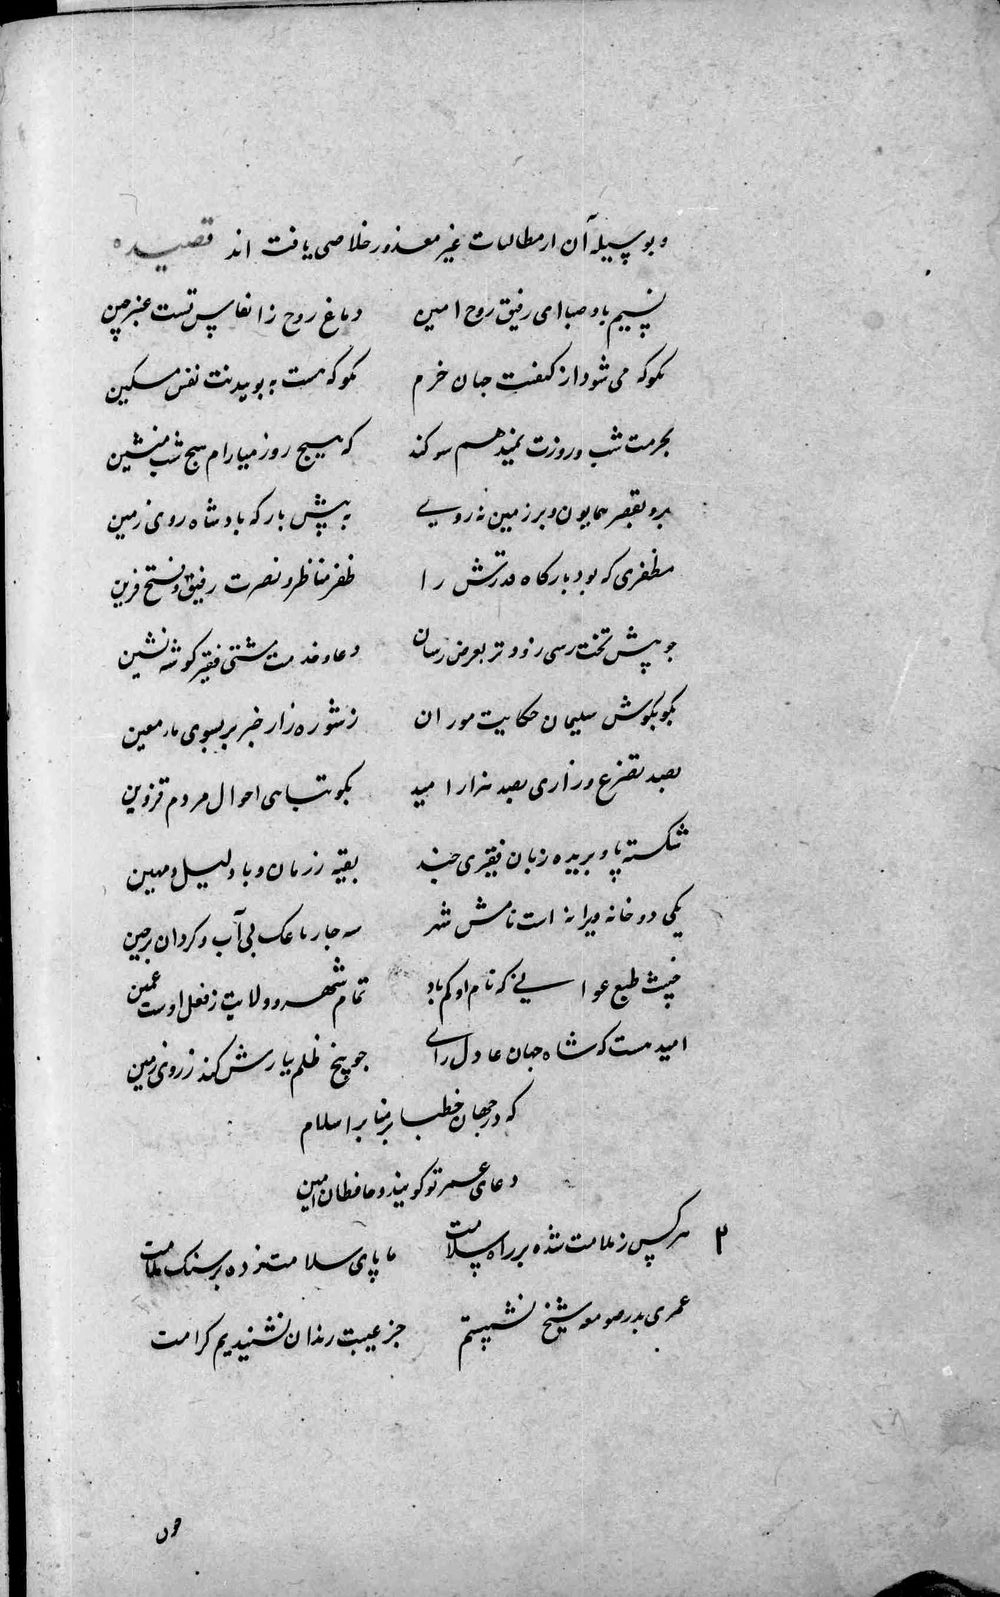 و بوسیله آن از مطالبات غیر معذور خلاصی یافت اند قصیده
نسیم باد صبا ای رفیق روح امین دماغ روح ز انفاس تست عنبرچین
بگو که می شود از گفتنت جهان خرم بگو که هست به بوییدنت نفس مسکین
بحرمت شب و روزت نمیدهم سوکند که هیچ روز میارام هیچ شب منشین
برو بقصر همایون و بر زمین نه روی به پیش بارکه بادشاه روی زمین
مظفری که بود بارکاه قدرتش را ظفر مناظر و نصرت رفیق و فتح قرین
چو پیش تخت رسی زودتر بعرض رسان دعا و خدمت مشتی فقیر کوشه نشین
بگو بکوش سلیمان حکایت موران ز شوره زار خبر بر بسوی ماء معین
بصد تضرع و زاری بصد هزار امید بگو تباهی احوال مردم قزوین
شکسته پا و بریده زبان فقیری چند بقیه ز زمان وبا دلیل و مهین
یکی دو خانه ویرانه است نامش شهر سه چار باغک بی آب و کردان برچین
خبیث طبع عوانی که نام او کم باد تمام شهر و ولایت ز فعل اوست غمین
امید هست که شاه جهان عادل رای چو بیخ ظلم بیارش کند ز روی زمین
که در جهان خطبا بر منابر اسلام
دعای عمر تو کویند و حافظان امین
۲ هر کس ز ملامت شده بر راه سلامت ما پای سلامت زده بر سنک ملامت
عمری بدر صومعه شیخ نشستیم جز غیبت رندان نشنیدیم کرامت
چون